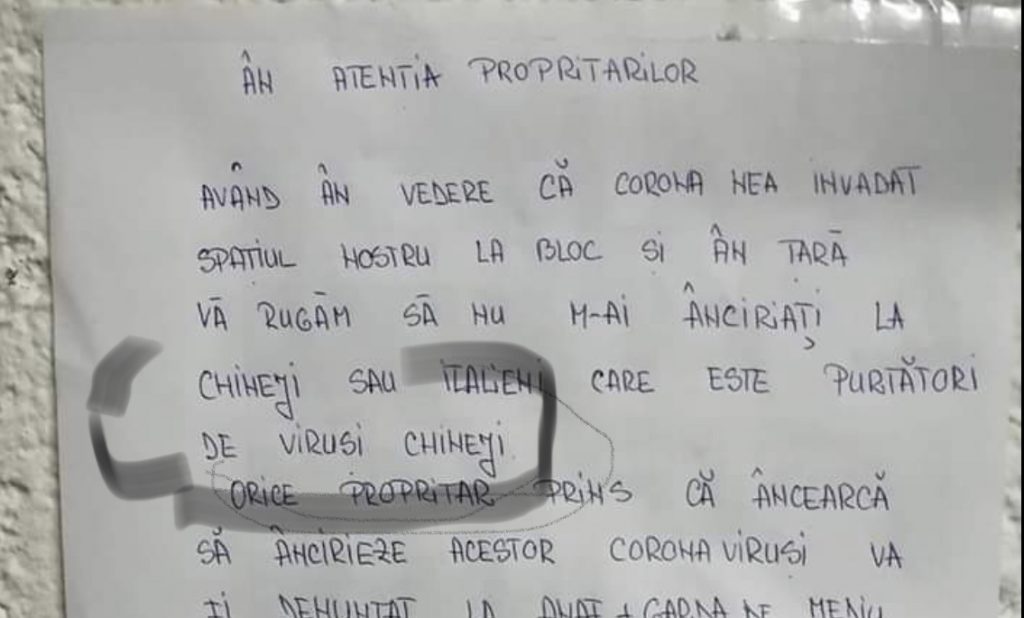 ÂN ATENTIA PROPRITARILOR
AVÂND ÂN VEDERE CĂ CORONA NEA INVADAT
SPATIUL NOSTRU LA BLOC SI ÂN TARĂ
VĂ RUGĂM SĂ NU M-AI ÂNCIRIAȚI LA
CHINEJI SAU ITALIENI CARE ESTE PURTĂTORI
DE VIRUSI CHINEJI.
ORICE PROPRITAR PRINS CĂ ÂNCEARCĂ
SĂ ÂNCIRIEZE ACESTOR CORONA VIRUSI VA
FI DENUNTAT LA ANAF + GARDA DE MEDIU